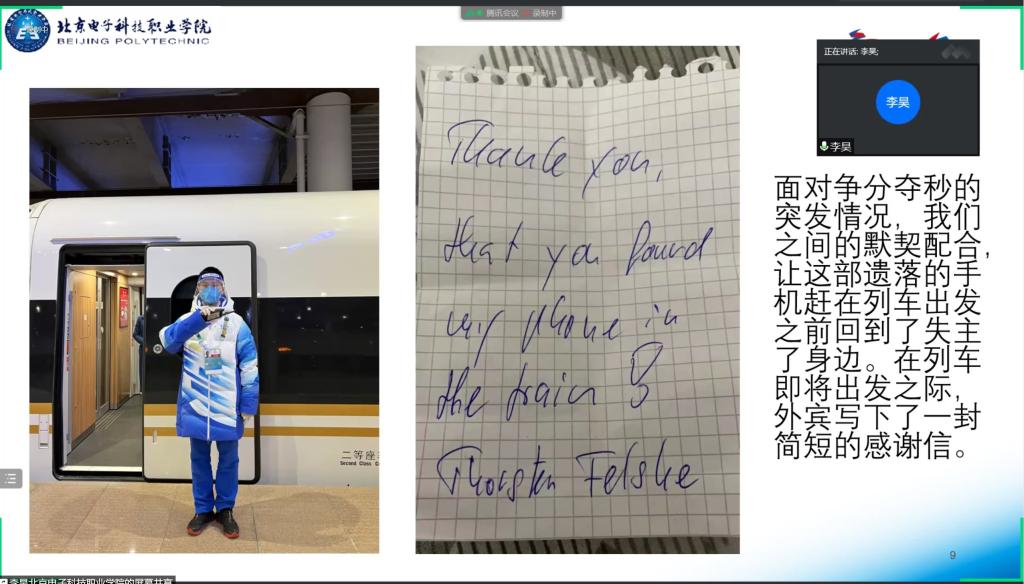 腾讯会议 录制中
北京电子科技职业学院
BEIJING POLYTECHNIC
正在讲话: 李昊;
李昊
李昊
Thank you,
that you found
my phone in
the train
Thorsten Felske
二等座车
Second Class
面对争分夺秒的
突发情况，我们
之间的默契配合，
让这部遗落的手
机赶在列车出发
之前回到了失主
了身边。在列车
即将出发之际，
外宾写下了一封
简短的感谢信。
9
李昊北京电子科技职业学院的屏幕共享